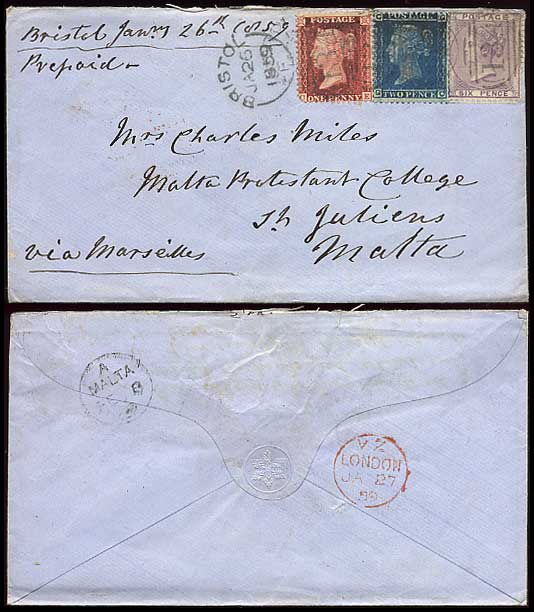 Bristol Jany 26th 1859
Prepaid -
BRISTOL
JA 26
1859
POSTAGE
ONE PENNY
POSTAGE
TWO PENCE
POSTAGE
SIX PENCE
Mrs Charles Miles
Malta Protestant College
St Juliens
via Marseilles
Malta
A
MALTA
FE
VZ
LONDON
JA 27
59